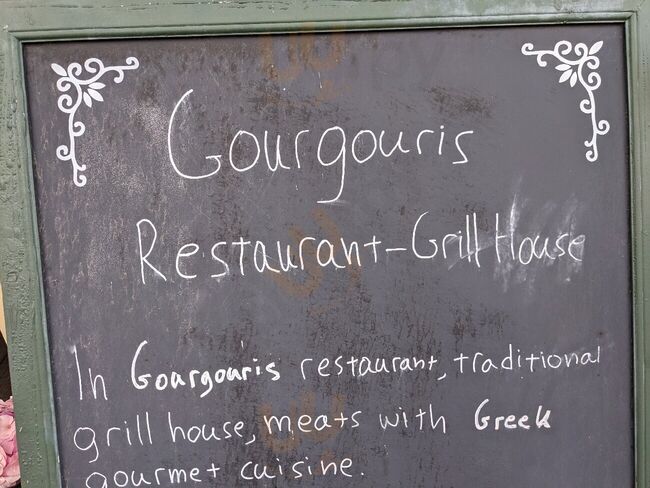 Gourgouris
Restaurant-Grill House
In Gourgouris restaurant, traditional
grill house, meats with Greek
gourmet cuisine.